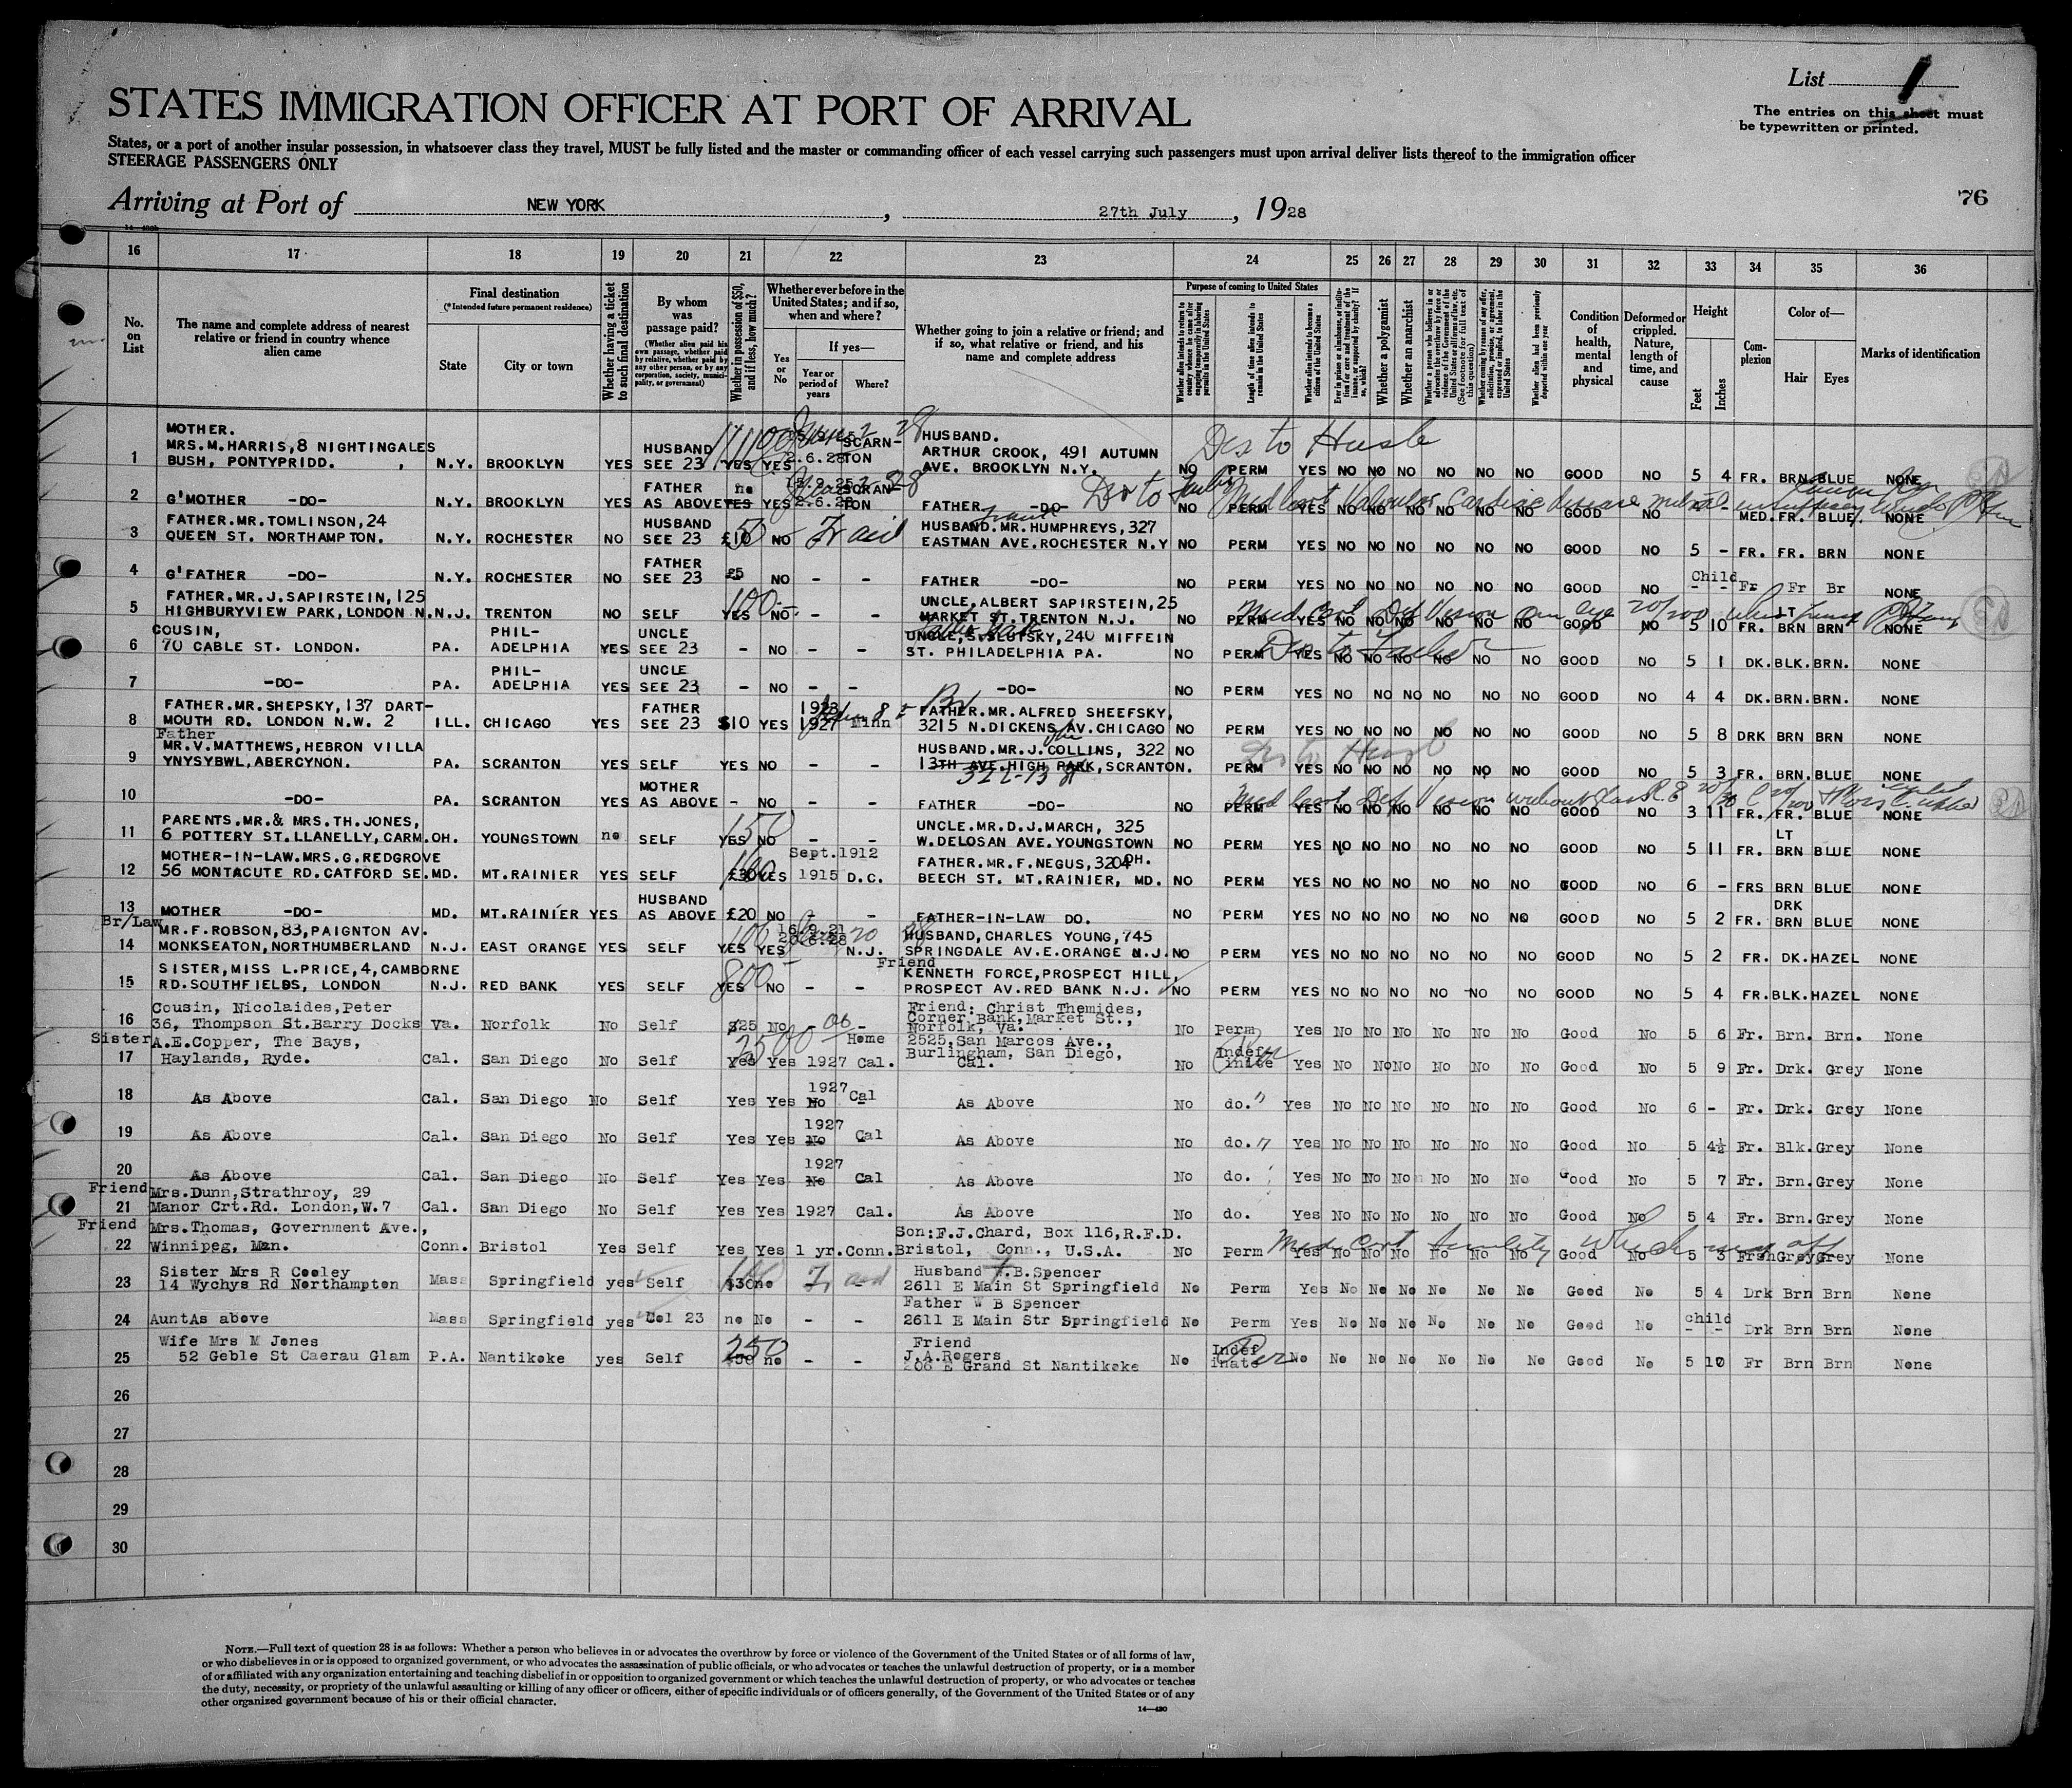 List 1
STATES IMMIGRATION OFFICER AT PORT OF ARRIVAL
The entries on this sheet must
be typewritten or printed.
States, or a port of another insular possession, in whatsoever class they travel, MUST be fully listed and the master or commanding officer of each vessel carrying such passengers must upon arrival deliver lists thereof to the immigration officer
STEERAGE PASSENGERS ONLY
Arriving at Port of NEW YORK, 27th July, 1928
76
16 17 18 19 20 21 22 23 24 25 26 27 28 29 30 31 32 33 34 35 36
No. on List
The name and complete address of nearest relative or friend in country whence alien came
Final destination
(*Intended future permanent residence)
State
City or town
Whether having a ticket to such final destination
By whom was passage paid?
(Whether alien paid his own passage, whether paid by relative, whether paid by any other person, or by any corporation, society, municipality, or government)
Whether in possession of $50, and if less, how much?
Whether ever before in the United States; and if so, when and where?
Yes or No
If yes—
Year or period of years
Where?
Whether going to join a relative or friend; and if so, what relative or friend, and his name and complete address
Purpose of coming to United States
Length of time alien intends to remain in the United States
Whether alien intends to become a citizen of the United States
Whether a polygamist
Whether an anarchist
Condition of health, mental and physical
Deformed or crippled. Nature, length of time, and cause
Height
Feet
Inches
Complexion
Color of—
Hair
Eyes
Marks of identification
1 MOTHER. MRS.M.HARRIS,8 NIGHTINGALES BUSH, PONTYPRIDD. N.Y. BROOKLYN YES HUSBAND SEE 23 YES YES 2.6.28 SCARNTON HUSBAND. ARTHUR CROOK, 491 AUTUMN AVE. BROOKLYN N.Y. NO PERM YES NO NO NO NO NO NO GOOD NO 5 4 FR. BRN BLUE NONE
Des to Husb
2 G'MOTHER -DO- N.Y. BROOKLYN YES FATHER AS ABOVE no YES YES 2.6.28 SCRANTON FATHER -DO- NO PERM YES NO NO NO NO NO NO GOOD NO - - MED. FR. BLUE. NONE
3 FATHER.MR.TOMLINSON,24 QUEEN ST. NORTHAMPTON. N.Y. ROCHESTER NO HUSBAND SEE 23 £10 50 NO HUSBAND.MR.HUMPHREYS,327 EASTMAN AVE.ROCHESTER N.Y NO PERM YES NO NO NO NO NO NO GOOD NO 5 - FR. FR. BRN NONE
4 G'FATHER -DO- N.Y. ROCHESTER NO FATHER SEE 23 £5 NO - - FATHER -DO- NO PERM YES NO NO NO NO NO NO GOOD NO Child - - Fr Fr Br NONE
5 FATHER.MR.J.SAPIRSTEIN,125 HIGHBURYVIEW PARK,LONDON N. N.J. TRENTON NO SELF YES 100 NO - - UNCLE,ALBERT SAPIRSTEIN,25 MARKET ST.TRENTON N.J. NO PERM YES NO NO NO NO NO NO GOOD NO 5 10 FR. LT BRN BRN NONE
6 COUSIN, 70 CABLE ST. LONDON. PA. PHILADELPHIA YES UNCLE SEE 23 - NO - - UNCLE,S.SLUTSKY,240 MIFFEIN ST. PHILADELPHIA PA. NO PERM YES NO NO NO NO NO NO GOOD NO 5 1 DK. BLK. BRN. NONE
7 -DO- PA. PHILADELPHIA YES UNCLE SEE 23 - NO - - -DO- NO PERM YES NO NO NO NO NO NO GOOD NO 4 4 DK. BRN. BRN. NONE
8 FATHER.MR.SHEPSKY,137 DARTMOUTH RD. LONDON N.W. 2 ILL. CHICAGO YES FATHER SEE 23 $10 YES 1923 1927 Minn FATHER.MR.ALFRED SHEEFSKY, 3215 N.DICKENS AV.CHICAGO NO PERM YES NO NO NO NO NO NO GOOD NO 5 8 DRK BRN BRN NONE
9 Father MR.V.MATTHEWS,HEBRON VILLA YNYSYBWL,ABERCYNON. PA. SCRANTON YES SELF YES NO - - HUSBAND.MR.J.COLLINS, 322 13TH AVE.HIGH PARK,SCRANTON. 322-13 St NO PERM YES NO NO NO NO NO NO GOOD NO 5 3 FR. BRN. BLUE NONE
Des to Husb
10 -DO- PA. SCRANTON YES MOTHER AS ABOVE - NO - - FATHER -DO- NO PERM YES NO NO NO NO NO NO GOOD NO 3 11 FR. FR. BLUE NONE
11 PARENTS.MR.& MRS.TH.JONES, 6 POTTERY ST.LLANELLY,CARM. OH. YOUNGSTOWN no SELF YES 150 NO - - UNCLE.MR.D.J.MARCH, 325 W.DELOSAN AVE.YOUNGSTOWN OH. NO PERM YES NO NO NO NO NO NO GOOD NO 5 11 FR. LT BRN BLUE NONE
12 MOTHER-IN-LAW.MRS.G.REDGROVE 56 MONTACUTE RD.CATFORD SE. MD. MT.RAINIER YES SELF £30 YES Sept.1912 1915 D.C. FATHER.MR.F.NEGUS,3204 BEECH ST. MT.RAINIER, MD. NO PERM YES NO NO NO NO NO NO GOOD NO 6 - FRS BRN BLUE NONE
13 MOTHER -DO- MD. MT.RAINIER YES HUSBAND AS ABOVE £20 NO - - FATHER-IN-LAW DO. NO PERM YES NO NO NO NO NO NO GOOD NO 5 2 FR. DRK BRN BLUE NONE
14 Br/Law MR.F.ROBSON,83,PAIGNTON AV. MONKSEATON,NORTHUMBERLAND N.J. EAST ORANGE YES SELF YES YES N.J. HUSBAND,CHARLES YOUNG,745 SPRINGDALE AV.E.ORANGE N.J. NO PERM YES NO NO NO NO NO NO GOOD NO 5 2 FR. DK. HAZEL NONE
15 SISTER,MISS L.PRICE,4,CAMBORNE RD.SOUTHFIELDS, LONDON N.J. RED BANK YES SELF YES 800 NO - - Friend KENNETH FORCE,PROSPECT HILL, PROSPECT AV.RED BANK N.J. NO PERM YES NO NO NO NO NO NO GOOD NO 5 4 FR. BLK. HAZEL NONE
16 Cousin, Nicolaides,Peter 36, Thompson St.Barry Docks Va. Norfolk No Self $25 No - - Friend: Christ Themides, Corner Bank,Market St., Norfolk, Va. No Perm Yes No No No No No No Good No 5 6 Fr. Brn. Brn. None
17 Sister A.E.Copper, The Bays, Haylands, Ryde. Cal. San Diego No Self Yes 2500 Yes 1927 Cal. Home 2525,San Marcos Ave., Burlingham, San Diego, Cal. No Indefinite Yes No No No No No No Good No 5 9 Fr. Drk. Grey None
18 As Above Cal. San Diego No Self Yes Yes 1927 No Cal As Above No do. Yes No No No No No No Good No 6 - Fr. Drk. Grey None
19 As Above Cal. San Diego No Self Yes Yes 1927 No Cal As Above No do. Yes No No No No No No Good No 5 4½ Fr. Blk. Grey None
20 As Above Cal. San Diego No Self Yes Yes 1927 No Cal As Above No do. Yes No No No No No No Good No 5 7 Fr. Brn. Grey None
21 Friend Mrs.Dunn,Strathroy, 29 Manor Crt.Rd. London,W.7 Cal. San Diego No Self Yes Yes 1927 Cal. As Above No do. Yes No No No No No No Good No 5 4 Fr. Brn. Grey None
22 Friend Mrs.Thomas, Government Ave., Winnipeg, Man. Conn. Bristol Yes Self Yes Yes 1 yr. Conn. Son:F.J.Chard, Box 116,R.F.D. Bristol, Conn., U.S.A. No Perm Yes No No No No No No Good No 5 3 Frsh Grey Grey None
23 Sister Mrs R Cooley 14 Wychys Rd Northampton Mass Springfield yes Self $30 no - Husband .B.Spencer 2611 E Main St Springfield No Perm Yes No No No No No No Good No 5 4 Drk Brn Brn None
24 Aunt As above Mass Springfield yes Col 23 no No - - Father W B Spencer 2611 E Main Str Springfield No Perm Yes No No No No No No Good No child - - Drk Brn Brn None
25 Wife Mrs M Jones 52 Geble St Caerau Glam P.A. Nantikoke yes Self 250 no - - Friend J.A.Rogers 206 E Grand St Nantikoke No Indefinate No No No No No No No Good No 5 10 Fr Brn Brn None
26
27
28
29
30
NOTE.—Full text of question 28 is as follows: Whether a person who believes in or advocates the overthrow by force or violence of the Government of the United States or of all forms of law,
or who disbelieves in or is opposed to organized government, or who advocates the assassination of public officials, or who advocates or teaches the unlawful destruction of property, or is a member
of or affiliated with any organization entertaining and teaching disbelief in or opposition to organized government or which teaches the unlawful destruction of property, or who advocates or teaches
the duty, necessity, or propriety of the unlawful assaulting or killing of any officer or officers, either of specific individuals or of officers generally, of the Government of the United States or of any
other organized government because of his or their official character.
14—430